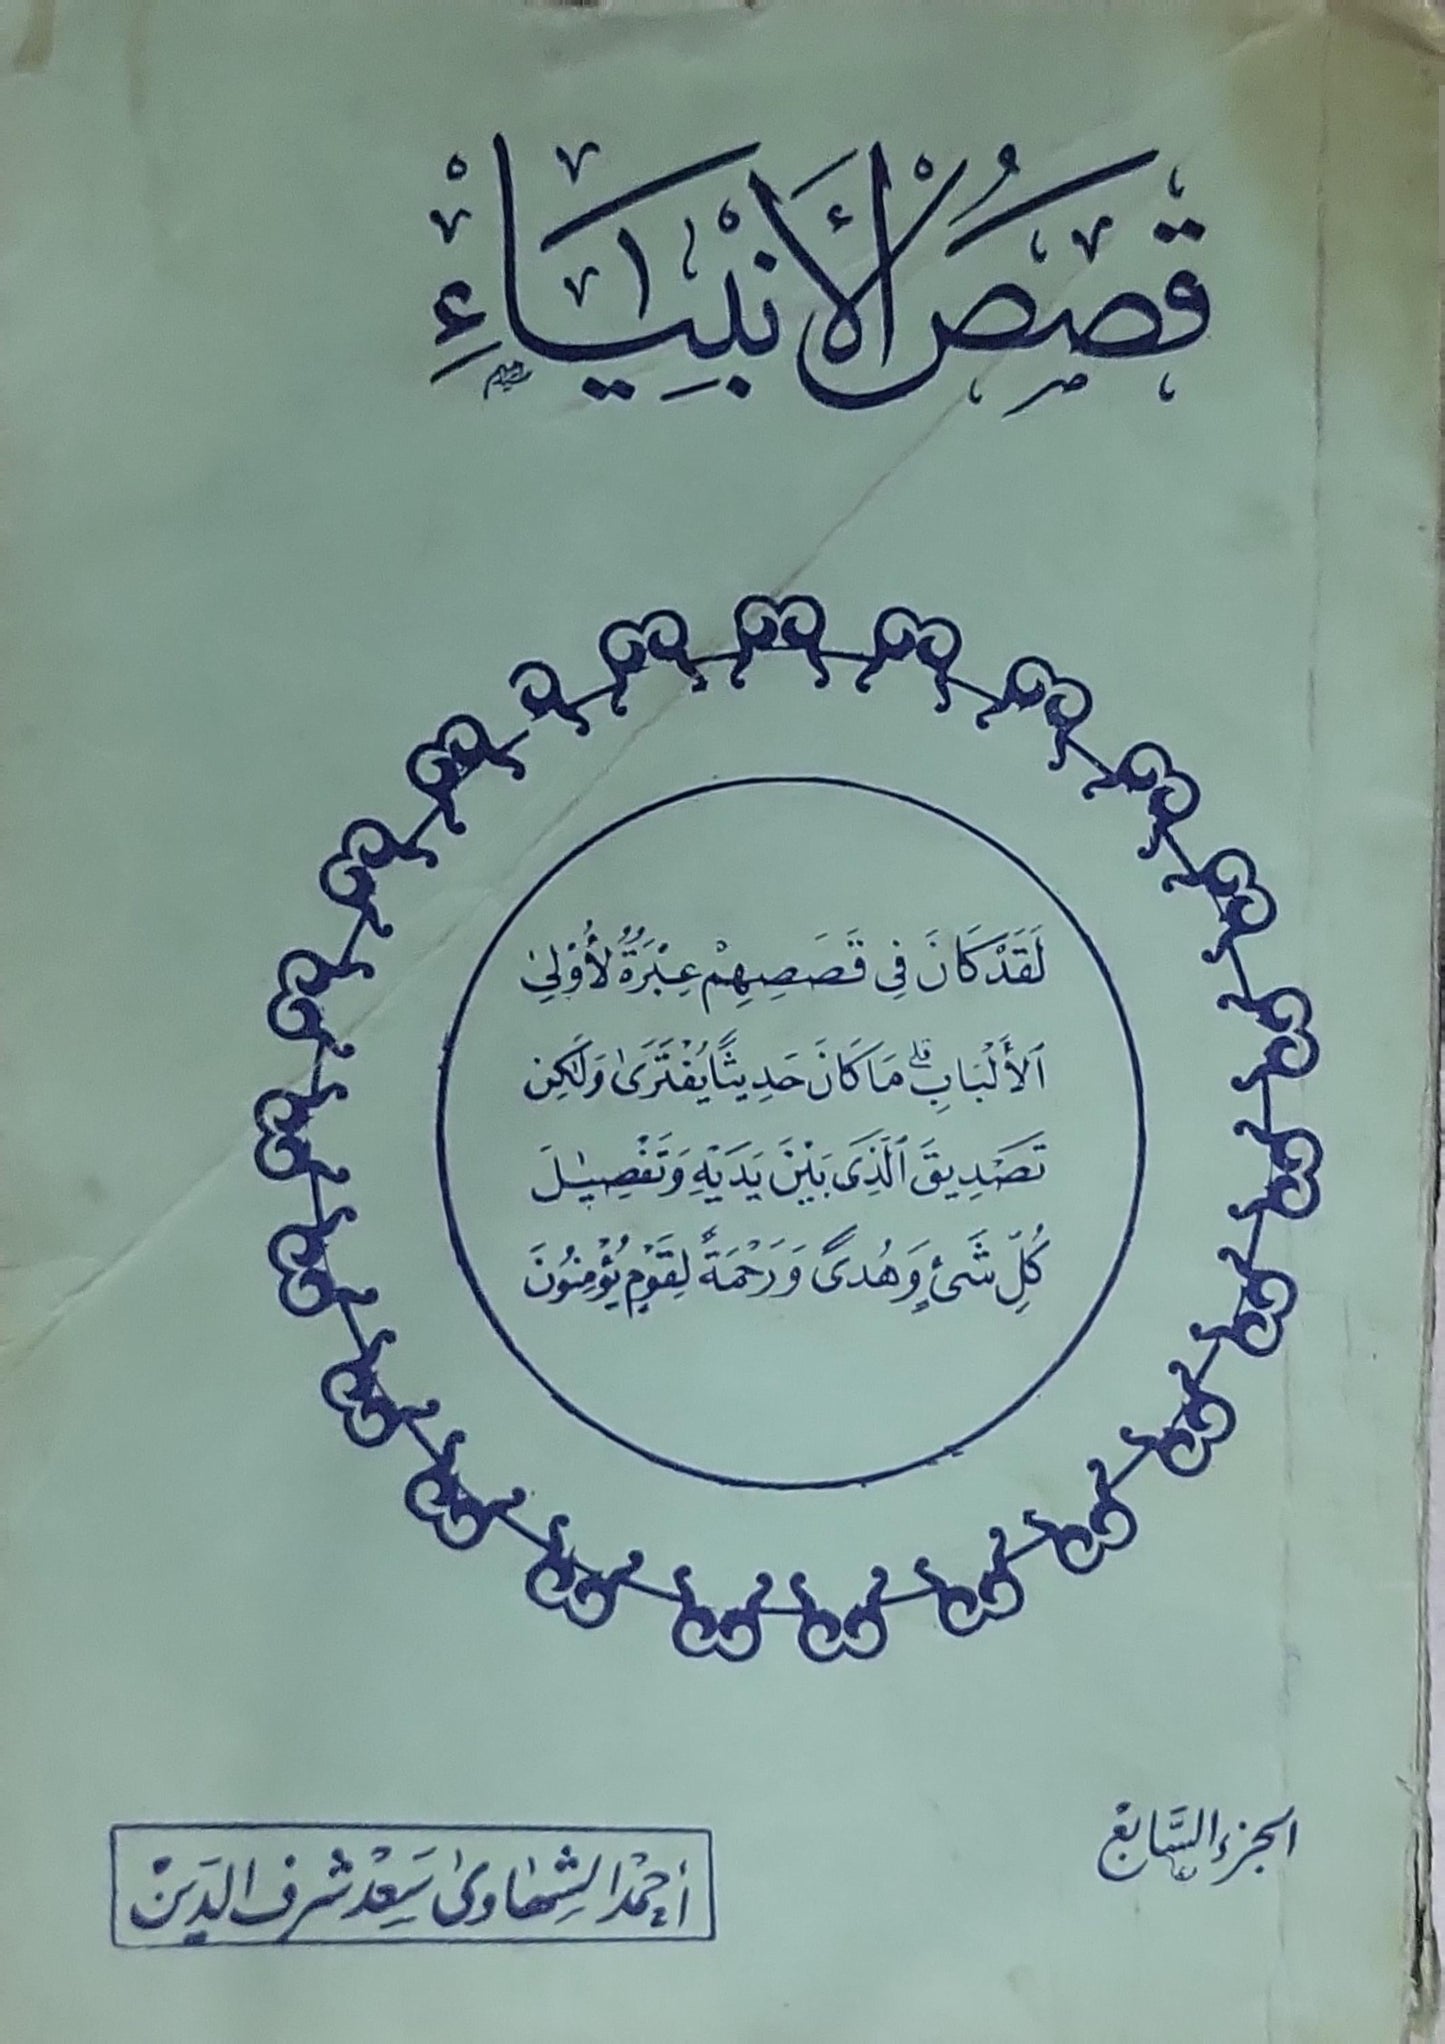 قَصَصُ الأَنْبِيَاءِ
لَقَدْ كَانَ فِي قَصَصِهِمْ عِبْرَةٌ لِأُوْلِي
ٱلأَلْبَابِ ۗ مَا كَانَ حَدِيثًا يُفْتَرَىٰ وَلَٰكِن
تَصْدِيقَ ٱلَّذِى بَيْنَ يَدَيْهِ وَتَفْصِيلَ
كُلِّ شَىْءٍ وَهُدًى وَرَحْمَةً لِقَوْمٍ يُؤْمِنُونَ
الجزء السَّابع
أحمد الشهاوى سَعد شرف الدين